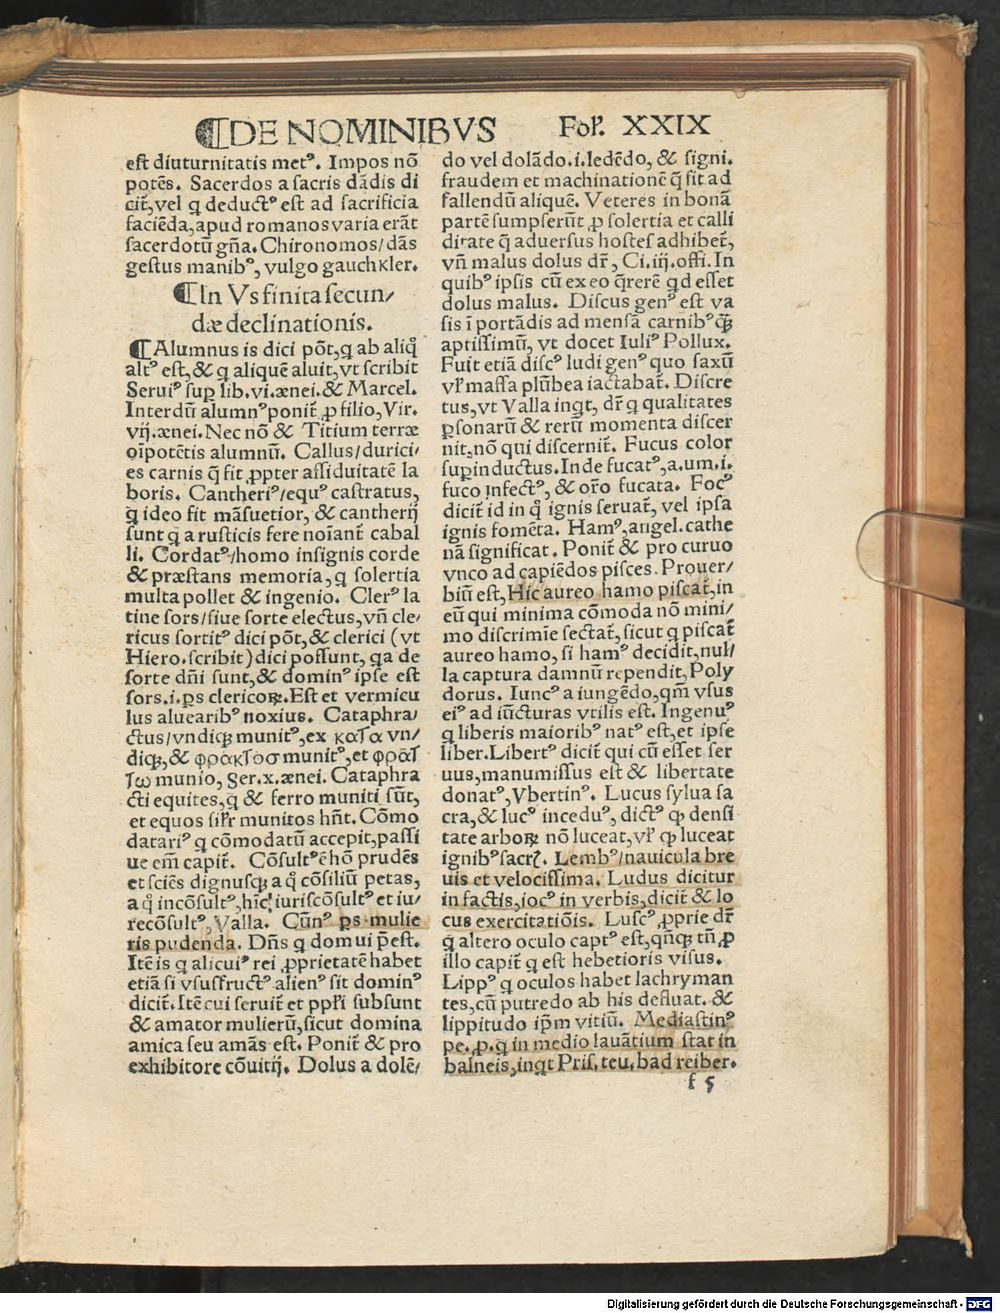 ¶DE NOMINIBVS Fol. XXIX
est diuturnitatis metꝰ. Impos nō
potēs. Sacerdos a sacris dādis di
cit̄, vel q deductꝰ est ad sacrificia
faciēda, apud romanos varia erāt
sacerdotū gn̄a. Chironomos/dās
gestus manibꝰ, vulgo gauchkler.
¶In Vs finita secun/
dæ declinationis.
¶Alumnus is dici pōt, q ab aliq̊
altꝰ est, & q aliquē aluit, vt scribit
Seruiꝰ sup lib. vi. ænei. & Marcel.
Interdū alumnꝰ ponit̄ ꝓ filio, Vir.
vij. ænei. Nec nō & Titium terræ
oīpotētis alumnū. Callus/durici/
es carnis q̄ fit ꝓpter assiduitatē la
boris. Cantheriꝰ/equꝰ castratus,
q ideo fit māsuetior, & cantherij
sunt q a rusticis fere noīant̄ cabal
li. Cordatꝰ/homo insignis corde
& præstans memoria, q solertia
multa pollet & ingenio. Clerꝰ la
tine sors/siue sorte electus, vn̄ cle/
ricus sortitꝰ dici pōt, & clerici (vt
Hiero. scribit) dici possunt, qa de
sorte dn̄i sunt, & dominꝰ ipse est
sors. i. ꝑs clericoꝝ. Est et vermicu
lus aluearibꝰ noxius. Cataphra/
ctus/vndiqꝫ munitꝰ, ex κατα vn/
diqꝫ, & φρακτοσ munitꝰ, et φρατ
τω munio, Ser. x. ænei. Cataphra
cti equites, q & ferro muniti sūt,
et equos sil̄r munitos hn̄t. Cōmo
datariꝰ q cōmodatū accepit, passi
ue em̄ capit̄. Cōsultꝰ ē hō prudēs
et sciēs dignusqꝫ a q̊ cōsiliū petas,
a q̊ incōsultꝰ, hīc iuriscōsultꝰ et iu/
recōsultꝰ, Valla. Cūnꝰ ꝑs mulie
ris pudenda. Dn̄s q domui p̄est.
Itē is q alicuiꝰ rei ꝓprietatē habet
etiā si vsusfructꝰ alienꝰ sit dominꝰ
dicit̄. Itē cui seruit̄ et pp̄li subsunt
& amator mulierū, sicut domina
amica seu amās est. Ponit̄ & pro
exhibitore cōuitij. Dolus a dolē/
do vel dolādo. i. ledēdo, & signi.
fraudem et machinationē q̄ fit ad
fallendū aliquē. Veteres in bonā
partē sumpserūt ꝓ solertia et calli
ditate q̄ aduersus hostes adhibet̄,
vn̄ malus dolus dr̄, Ci. iij. offi. In
quibꝰ ipsis cū ex eo q̄rerē qd esset
dolus malus. Discus genꝰ est va
sis ī portādis ad mensā carnibꝰqꝫ
aptissimū, vt docet Iuliꝰ Pollux.
Fuit etiā discꝰ ludi genꝰ quo saxū
vl̄ massa plūbea iactabat̄. Discre
tus, vt Valla inqt, dr̄ q qualitates
ꝑsonarū & rerū momenta discer
nit, nō qui discernit̄. Fucus color
supinductus. Inde fucatꝰ, a. um. i.
fuco infectꝰ, & or̄o fucata. Focꝰ
dicit̄ id in q̊ ignis seruat̄, vel ipsa
ignis fomēta. Hamꝰ, angel. cathe
nā significat. Ponit̄ & pro curuo
vnco ad capiēdos pisces. Prouer/
biū est, Hic aureo hamo piscat̄, in
eū qui minima cōmoda nō mini/
mo discrimīe sectat̄, sicut q piscat̄
aureo hamo, si hamꝰ decidit, nul/
la captura damnū rependit, Poly
dorus. Iuncꝰ a iungēdo, qm̄ vsus
eiꝰ ad iūcturas vtilis est. Ingenuꝰ
q liberis maioribꝰ natꝰ est, et ipse
liber. Libertꝰ dicit̄ qui cū esset ser
uus, manumissus est & libertate
donatꝰ, Vbertinꝰ. Lucus sylua sa
cra, & lucꝰ inceduꝰ, dictꝰ ꝙ densi
tate arboꝝ nō luceat, vl̄ ꝙ luceat
ignibꝰ sacrꝭ. Lembꝰ/nauicula bre
uis et velocissima. Ludus dicitur
in factis, iocꝰ in verbis, dicit̄ & lo
cus exercitatiōis. Luscꝰ, ꝓprie dr̄
q altero oculo captꝰ est, qn̄qꝫ tn̄ ꝓ
illo capit̄ q est hebetioris visus.
Lippꝰ q oculos habet lachryman
tes, cū putredo ab his defluat. &
lippitudo ip̄m vitiū. Mediastinꝰ
pe. ꝓ. q in medio lauātium stat in
balneis, inqt Pris. teu. bad reiber.
f 5
Digitalisierung gefördert durch die Deutsche Forschungsgemeinschaft - DFG